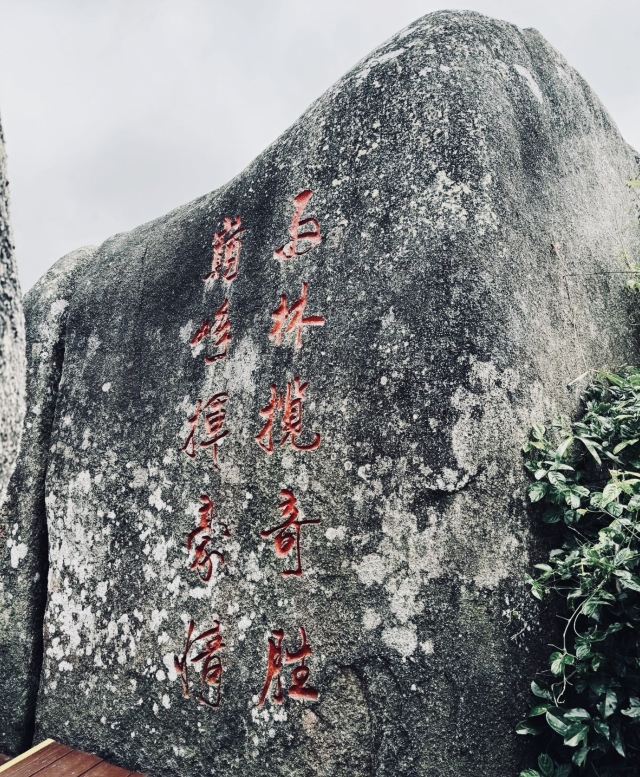 石林揽奇胜
巅峰挥豪情